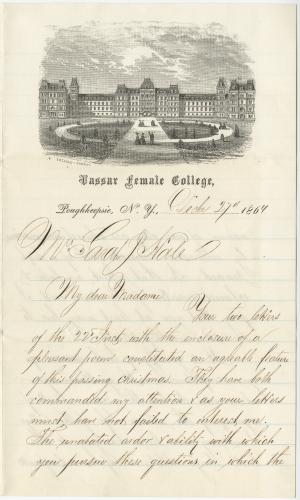 Vassar Female College,
Poughkeepsie, N. Y., Decbr 27th 1864
Mrs Sarah J Hale
My dear Madame
Your two letters
of the 22d Inst, with the enclosure of a
pleasant poem constituted an agreable feature
of this passing Christmas. They have both
commanded my attention & as your letters
must, have not failed to interest me.
The unabated ardor & ability with which
you pursue these questions in which the